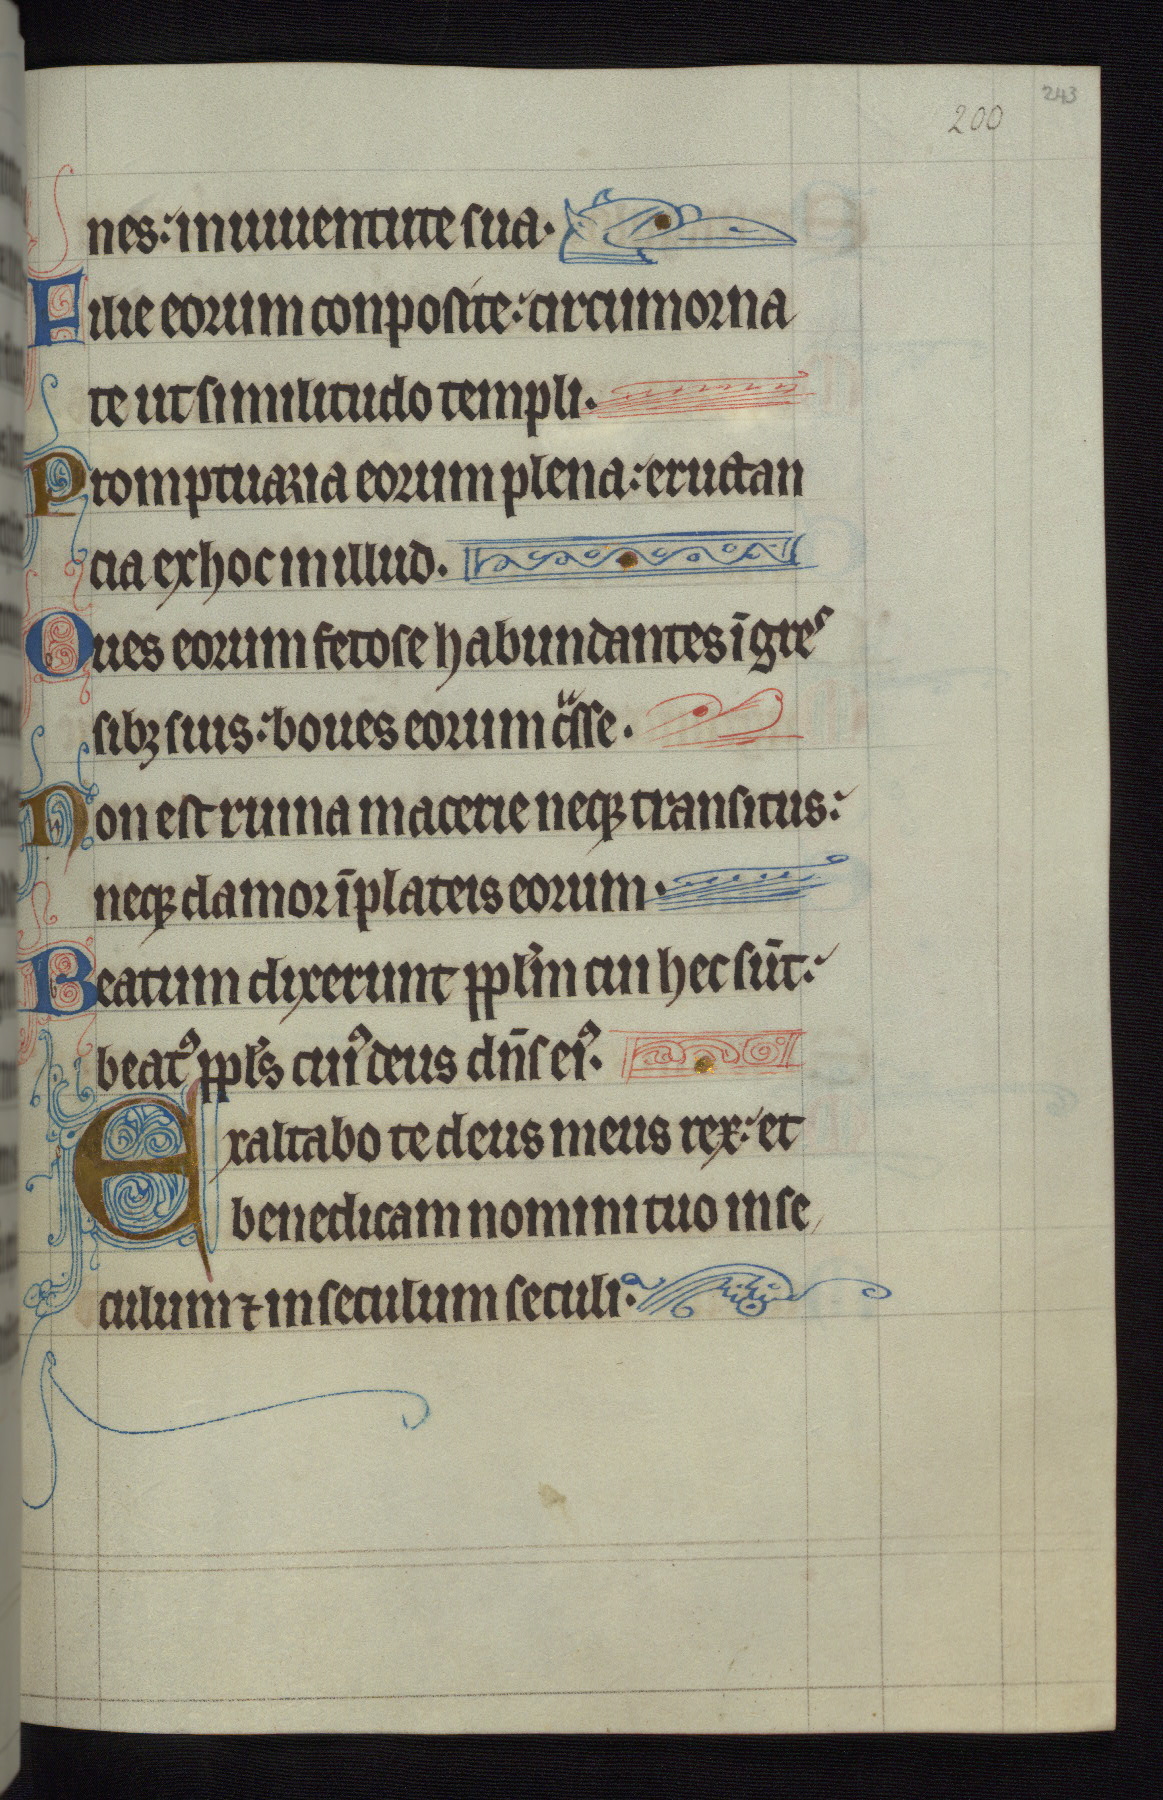 243
200
nes: in iuuentute sua.
Filie eorum conposite: circumorna
te ut similitudo templi.
Promptuaria eorum plena: eructan
cia ex hoc in illud.
Oues eorum fetose habundantes īgres
sibꝫ suis: boues eorum cͣsse.
Non est ruina macerie neqꝫ transitus:
neqꝫ clamor ī plateis eorum.
Beatum dixerunt pp̄lm cui hec sūt:
beatꝰ pp̄ls cuiꝰ deus dn̄s eiꝰ.
Exaltabo te deus meus rex: et
benedicam nomini tuo in se
culum ⁊ in seculum seculi.